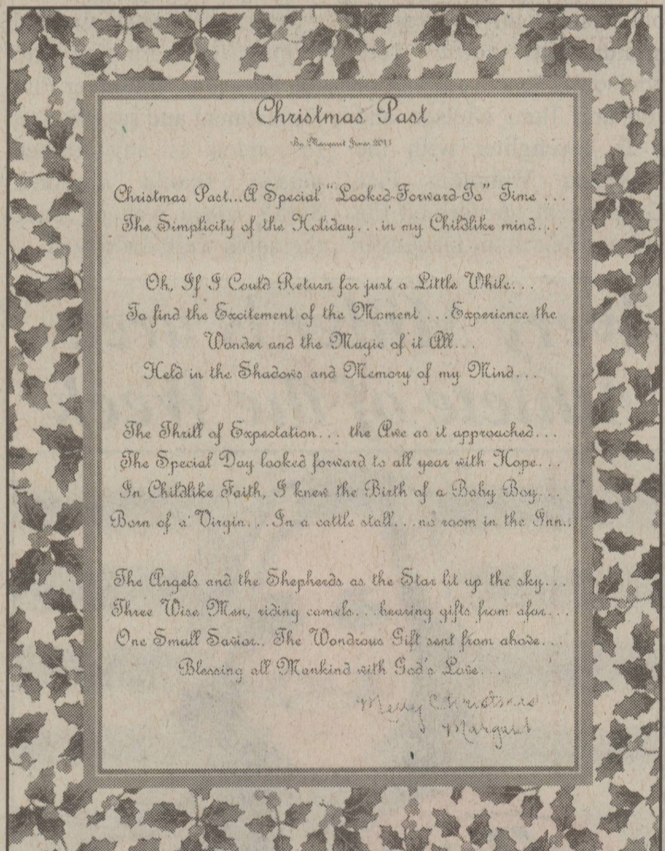 Christmas Past
By Margaret 2011
Christmas Past...A Special "Looked-Forward-To" Time ...
The Simplicity of the Holiday...in my Childlike mind...
Oh, If I Could Return for just a Little While...
To find the Excitement of the Moment ...Experience the
Wonder and the Magic of it All...
Held in the Shadows and Memory of my Mind...
The Thrill of Expectation... the Awe as it approached...
The Special Day looked forward to all year with Hope...
In Childlike Faith, I knew the Birth of a Baby Boy...
Born of a Virgin...In a cattle stall...no room in the Inn..
The Angels and the Shepherds as the Star lit up the sky...
Three Wise Men, riding camels...bearing gifts from afar...
One Small Savior.. The Wondrous Gift sent from above...
Blessing all Mankind with God's Love...
Merry Christmas
Margaret